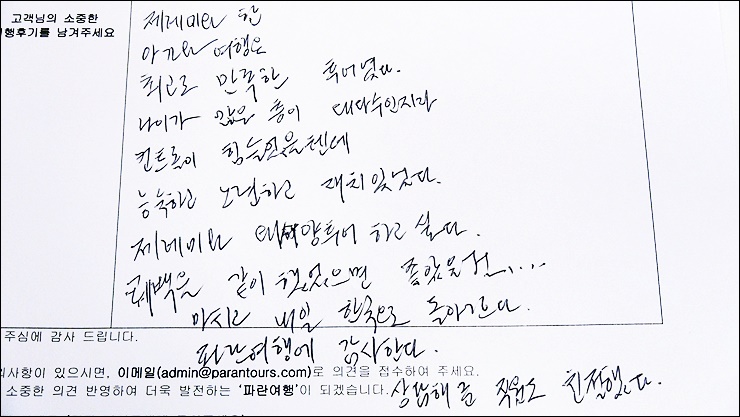 고객님의 소중한
행후기를 남겨주세요
제레미와 한
아기와 여행은
최고로 만족한 투어였다.
나이가 많은 층이 대다수인지라
컨트롤이 힘들었을텐데
능숙하고 노련하고 재치있었다.
제레미와 태양투어 하고 싶다.
을 같이 했었으면 좋았을걸....
마시고 내일 한국으로 돌아간다.
파란여행에 감사한다.
상담해준 직원도 친절했다.
주심에 감사 드립니다.
사항이 있으시면, 이메일(admin@parantours.com)로 의견을 접수하여 주세요.
소중한 의견 반영하여 더욱 발전하는 '파란여행'이 되겠습니다.